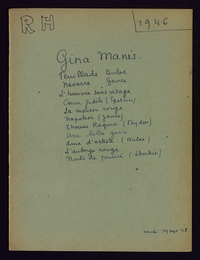 RH
1946
Gina Manès.
Feuillade Dulac
Navarre Gance
L'homme sans visage
Cœur fidèle (Epstein)
La maison rouge
Napoléon (Gance)
Thérèse Raquin (Feyder)
Une belle garce
Ame d'artiste (Dulac)
L'auberge rouge
Nuits de prince (L'herbier)